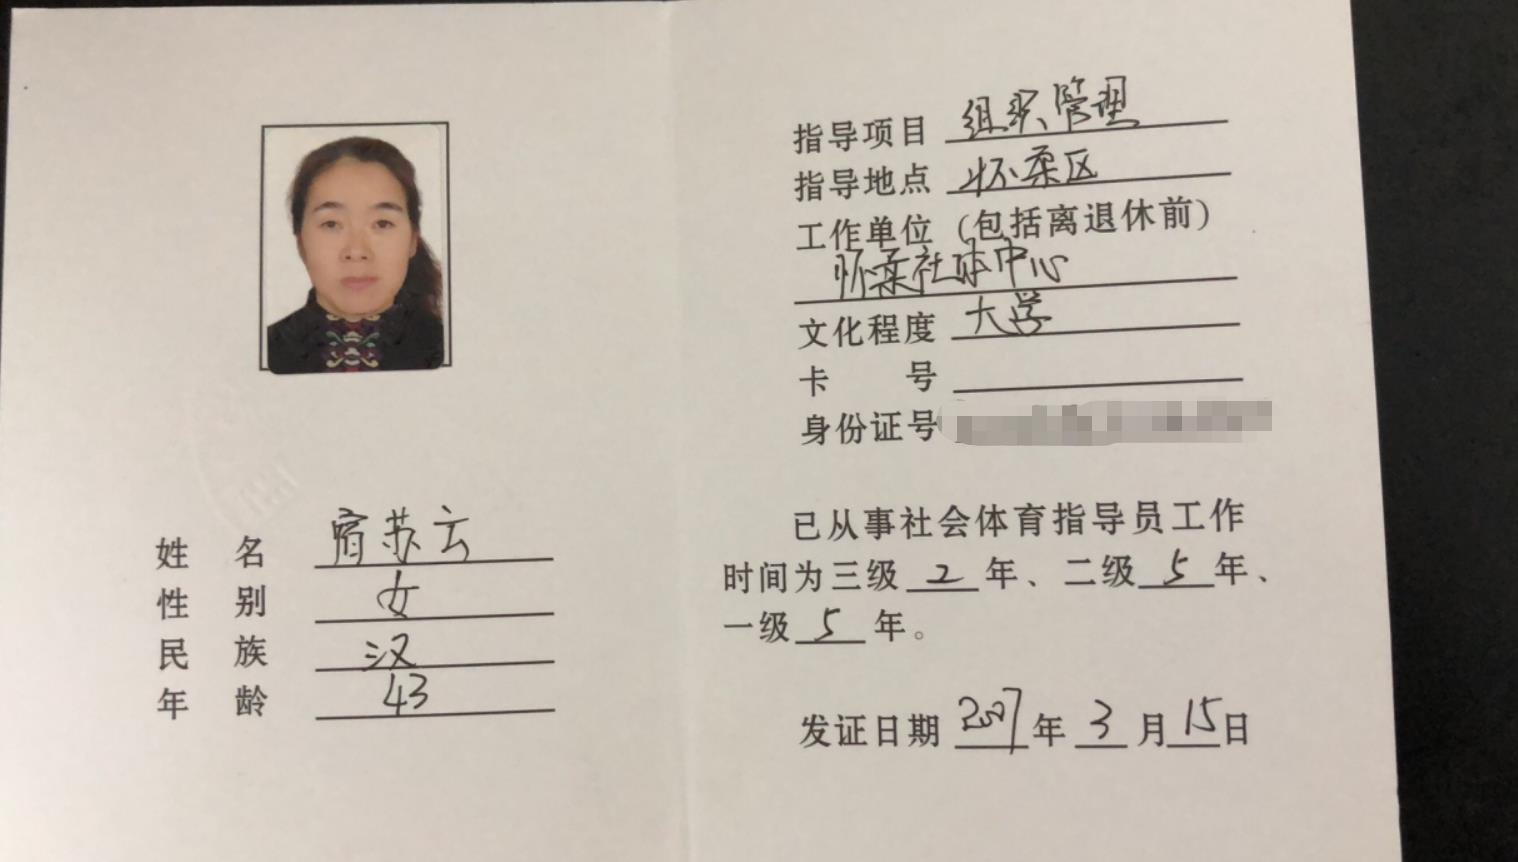 姓 名 宿苏云
性 别 女
民 族 汉
年 龄 43
指导项目 组织管理
指导地点 怀柔区
工作单位（包括离退休前）
怀柔社体中心
文化程度 大学
卡 号
身份证号
已从事社会体育指导员工作
时间为三级 2 年、二级 5 年、
一级 5 年。
发证日期 2007 年 3 月 15 日